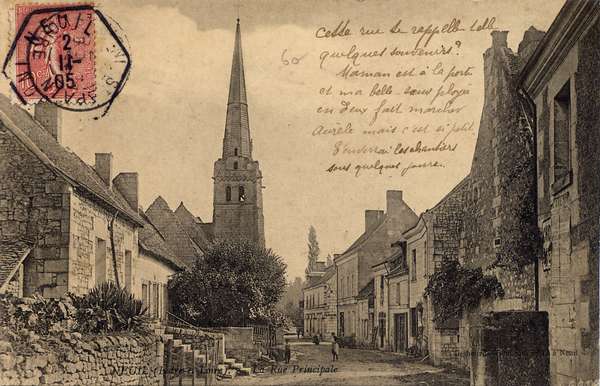 NEUIL
2
II
05
60
Cette rue te rappelle-t-elle
quelques souvenirs?
Maman est à la porte
et ma belle-sœur ployée
en deux fait marcher
Aurèle mais c'est si petit
J'enverrai les chantiers
sous quelques jours.
NEUIL (Indre-et-Loire) La Rue Principale
à Neuil